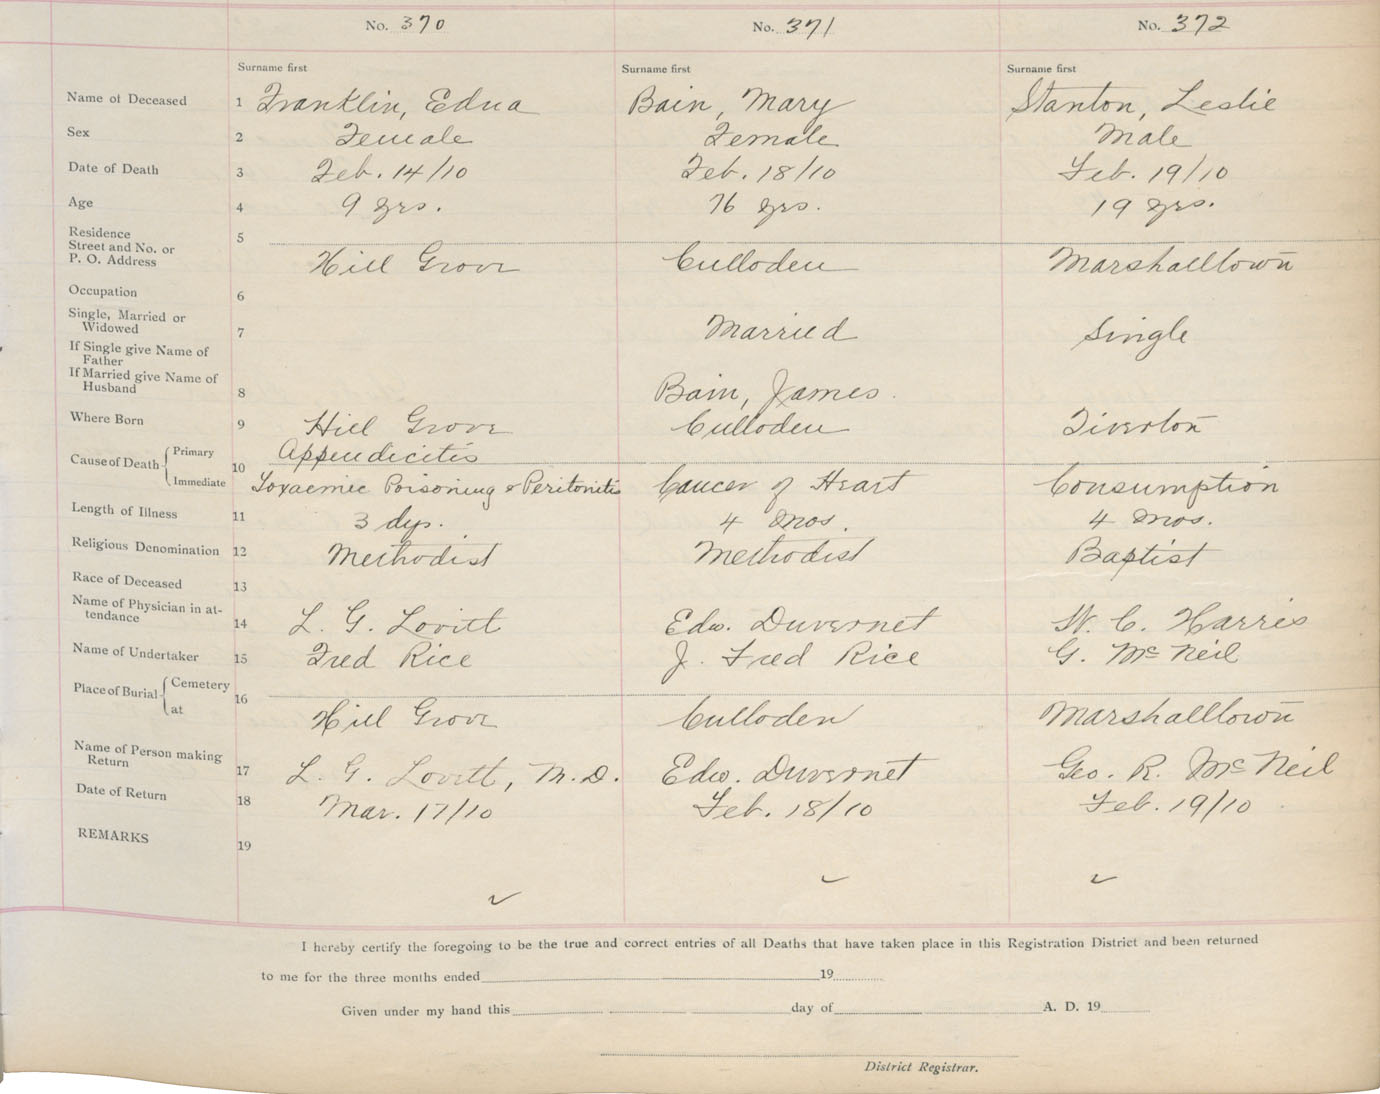 No. 370 No. 371 No. 372
Surname first Surname first Surname first
Name of Deceased 1 Franklin, Edna Bain, Mary Stanton, Leslie
Sex 2 Female Female Male
Date of Death 3 Feb. 14/10 Feb. 18/10 Feb. 19/10
Age 4 9 yrs. 76 yrs. 19 yrs.
Residence 5
Street and No. or
P. O. Address Hill Grove Culloden Marshalltown
Occupation 6
Single, Married or
Widowed 7 Married Single
If Single give Name of
Father
If Married give Name of
Husband 8 Bain, James.
Where Born 9 Hill Grove Culloden Tiverton
Cause of Death Primary 10 Appendicitis
Immediate Toxaemic Poisoning & Peritonitis Cancer of Heart Consumption
Length of Illness 11 3 dys. 4 mos. 4 mos.
Religious Denomination 12 Methodist Methodist Baptist
Race of Deceased 13
Name of Physician in at-
tendance 14 L. G. Lovitt Edw. Duvernet W. C. Harris
Name of Undertaker 15 Fred Rice J. Fred Rice G. McNeil
Place of Burial Cemetery 16
at Hill Grove Culloden Marshalltown
Name of Person making
Return 17 L. G. Lovitt, M.D. Edw. Duvernet Geo. R. McNeil
Date of Return 18 Mar. 17/10 Feb. 18/10 Feb. 19/10
REMARKS 19
I hereby certify the foregoing to be the true and correct entries of all Deaths that have taken place in this Registration District and been returned
to me for the three months ended 19
Given under my hand this day of A. D. 19
District Registrar.